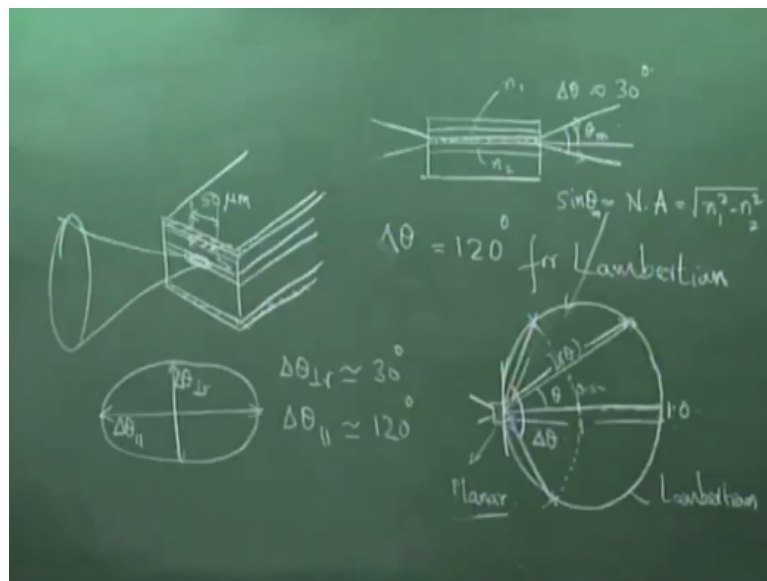 n₁
Δθ ≈ 30°
θₘ
n₂
50 μm
sinθₘ = N.A = √n₁²-n₂²
Δθ = 120° for Lambertian
Δθ⊥r ≃ 30°
Δθ|| ≃ 120°
Δθ⊥r
Δθ||
I(θ)
θ
1.0
Δθ
Planar
Lambertian